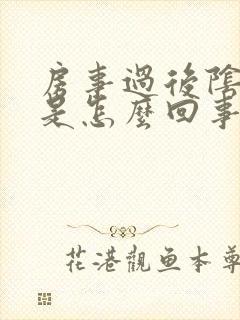 房事過後陰
是怎麼回事
花港觀鱼本尊